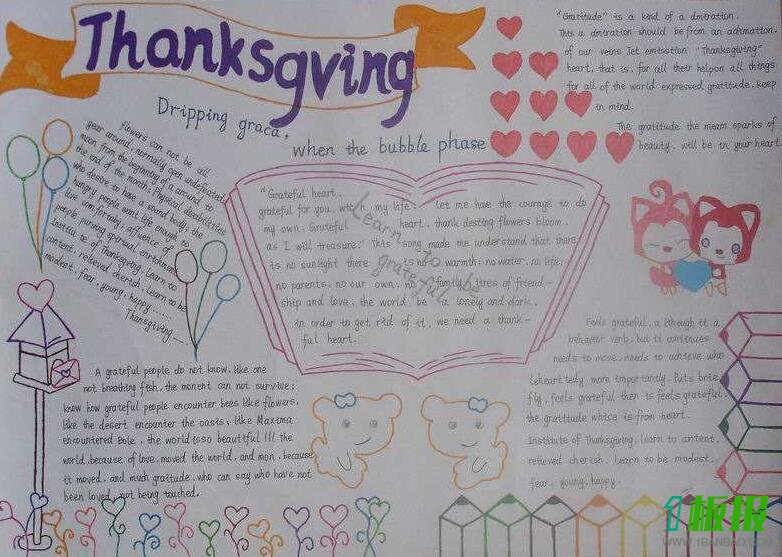 Thanksgving
Dripping graca,
when the bubble phase
"Gratitude" is a kind of a dmiration.
This a dmiration should be from an adimation.
of our veins Jet emtsstion "Thanksgiving"
heart, that is, for all their helpon all things
for all of the world expressed gratitude, keep
in mind.
The gratitude the meam sparks of
beauty, will be in your heart.
flowers can not be all
year around, normally open undefeated
moon from the beginning of a around to
the end of the month: Physical disabilities
who desire to have a sound body, the
hungry people want life enough to
live comfortably; affluence of
people purning spiritual enrichment
Institu te of Thanksgiving. Learn to
content, relieved cherish. Learn to be
modest, fear, young, happy......
Thansgiving....
"Grateful heart,
grateful for you, with my life, let me have the courage to do
my own. Grateful heart, thank desting flowers bloom,
as I will treasure." This song made me understand that there
is no sunlight there is no warmth; no water, no life;
no parents, no our own, no family, tires of friend-
ship and love, the world be lonely and dark.
in order to get rid of it, we need a thank-
ful heart.
Learn to be
grateful
A grateful people do not know, like one
not breathing fish, the monent can not survive;
know how grateful people encounter bees like flowers,
like the desert encounter the oasis; like Maxima
encountered Bole, the world isso beautiful !!! the
world, because of love, moved the world, and mon, because
it moved, and much grafitude, who can say who have not
been loved, not being touched.
Feels grateful, a lthough it a
behavior verb, but it continues
needs to move, needs to achieve who
leheartedy more importantly. Puts brie
fly, feels grateful then is feels grateful,
the gratitude whice is from heart.
Institute of Thanksgiving, learn to content,
relieved cherish, learn to be modest,
fear, young, happy.
1板报
WWW.1BANBAO.COM